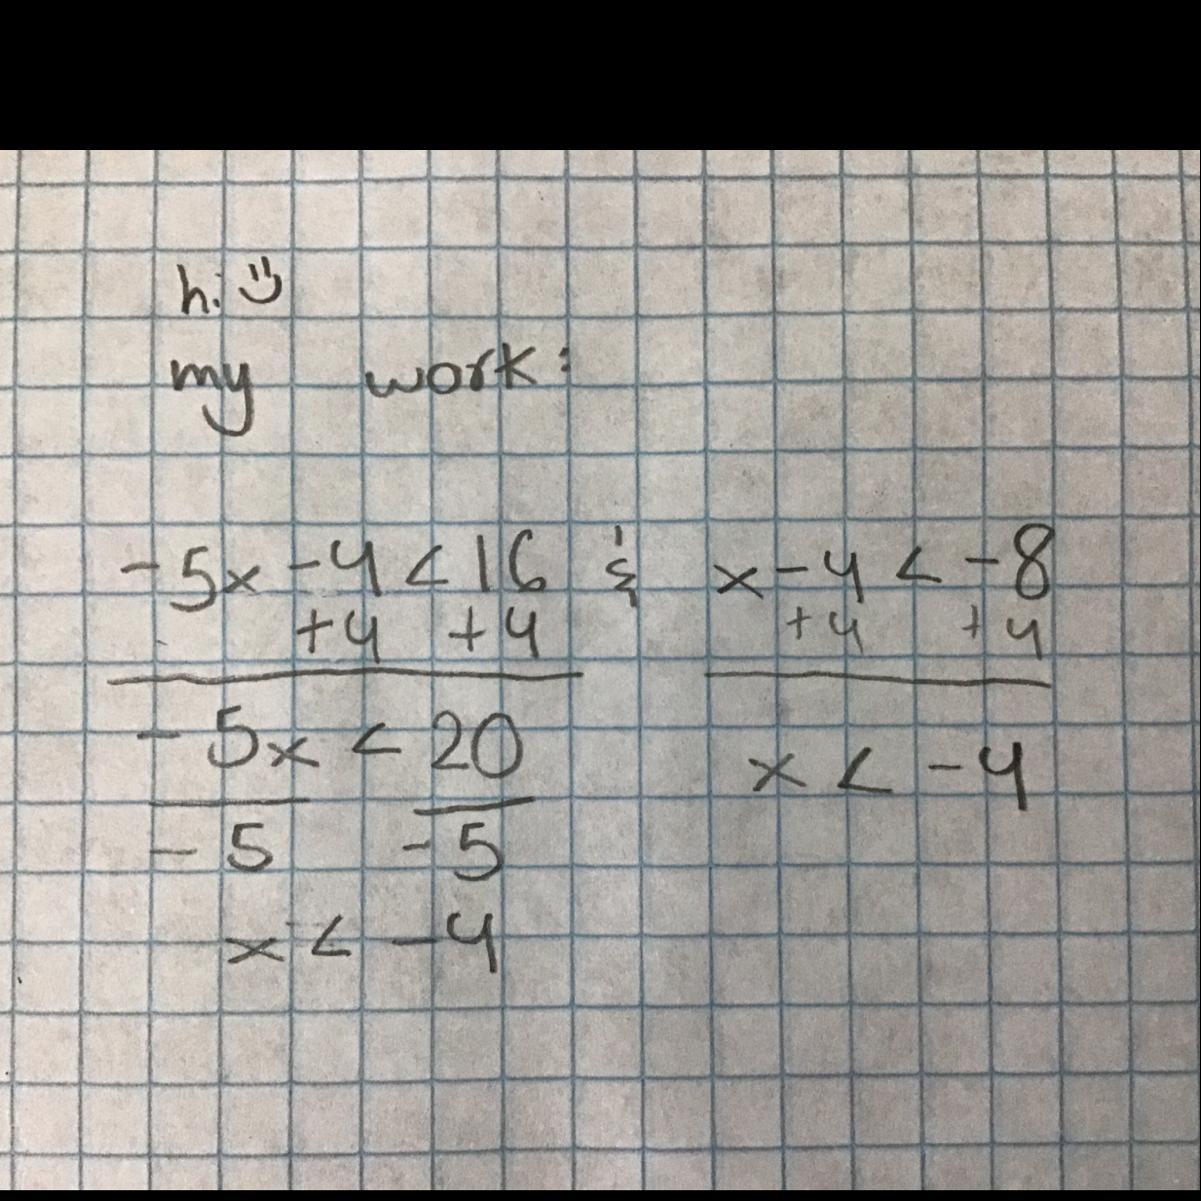 hi
my work:
-5x -4 < 16 & x - 4 < -8
+4 +4 +4 +4
-5x < 20 x < -4
-5 -5
x < -4